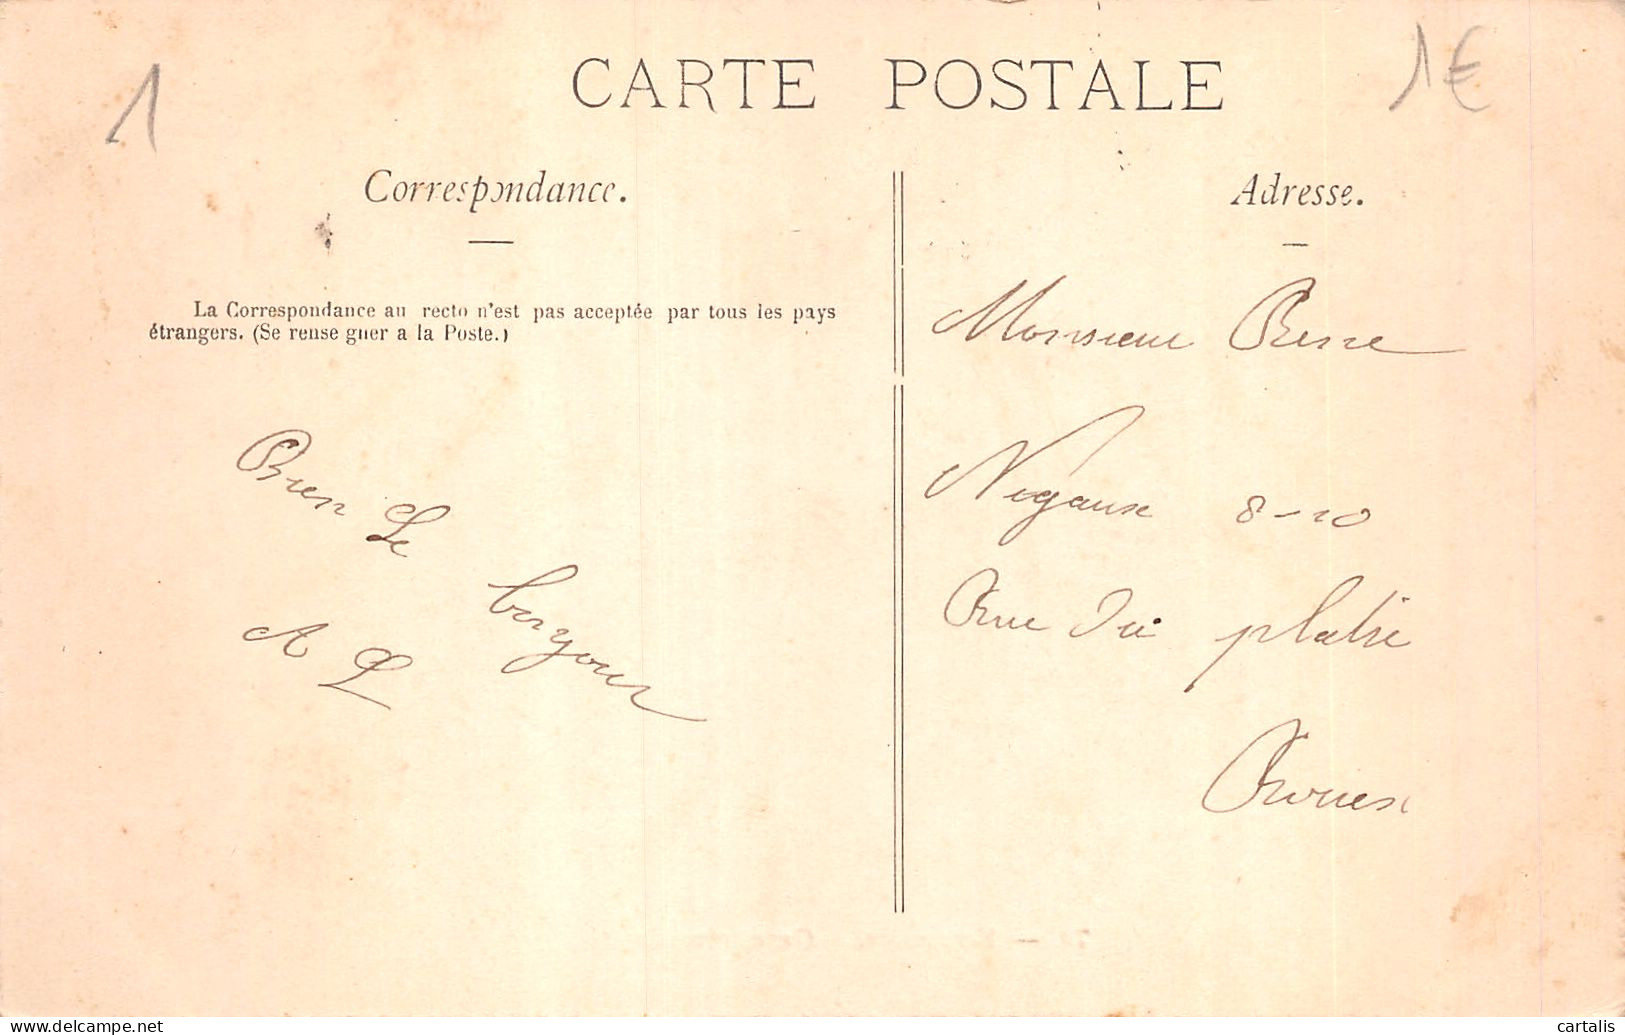 1
CARTE POSTALE
1€
Correspondance.
La Correspondance au recto n'est pas acceptée par tous les pays
étrangers. (Se rense gner a la Poste.)
Bien Le bonjour
A L
Adresse.
Monsieur
8-10
Rue Du platre
Rouen
delcampe.net
cartalis